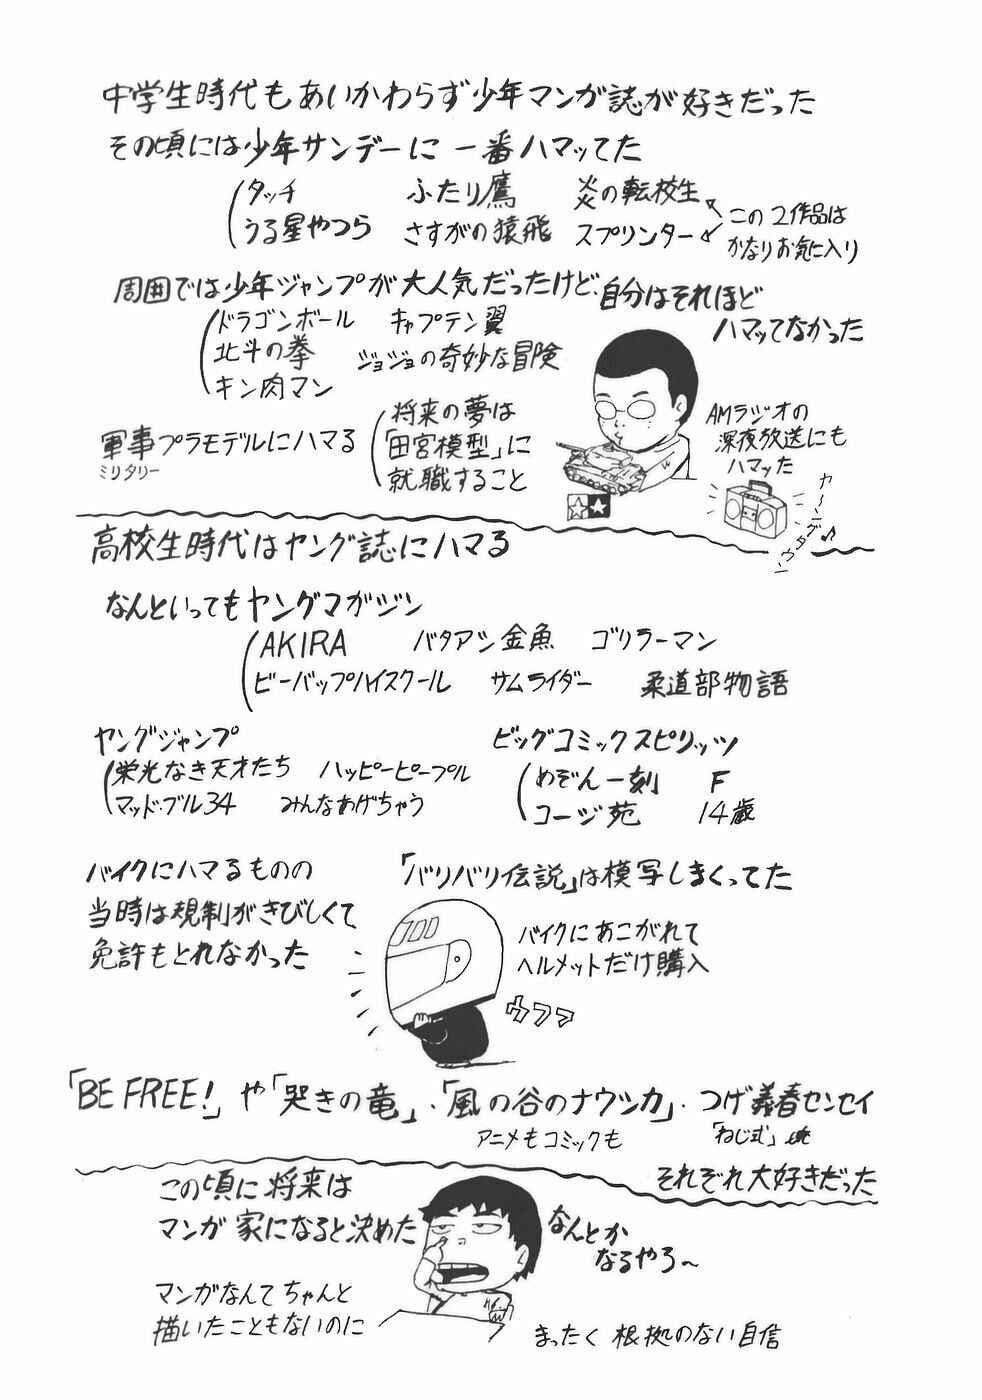 中学生時代もあいかわらず少年マンガ誌が好きだった
その頃には少年サンデーに一番ハマッてた
タッチ ふたり鷹 炎の転校生
うる星やつら さすがの猿飛 スプリンター
この2作品は
かなりお気に入り
周囲では少年ジャンプが大人気だったけど、自分はそれほど
ハマッてなかった
ドラゴンボール キャプテン翼
北斗の拳 ジョジョの奇妙な冒険
キン肉マン
軍事プラモデルにハマる
ミリタリー
将来の夢は
「田宮模型」に
就職すること
AMラジオの
深夜放送にも
ハマッた
ヤングタウン♪
高校生時代はヤング誌にハマる
なんといってもヤングマガジン
AKIRA バタアシ金魚 ゴリラーマン
ビーバップハイスクール サムライダー 柔道部物語
ヤングジャンプ
栄光なき天才たち ハッピーピープル
マッド・ブル34 みんなあげちゃう
ビッグコミックスピリッツ
めぞん一刻 F
コージ苑 14歳
バイクにハマるものの
当時は規制がきびしくて
免許もとれなかった
「バリバリ伝説」は模写しまくってた
バイクにあこがれて
ヘルメットだけ購入
ウフフ
「BE FREE!」や「哭きの竜」、「風の谷のナウシカ」、つげ義春センセイ
アニメもコミックも
「ねじ式」他
それぞれ大好きだった
この頃に将来は
マンガ家になると決めた
なんとか
なるやろ〜
マンガなんてちゃんと
描いたこともないのに
まったく根拠のない自信